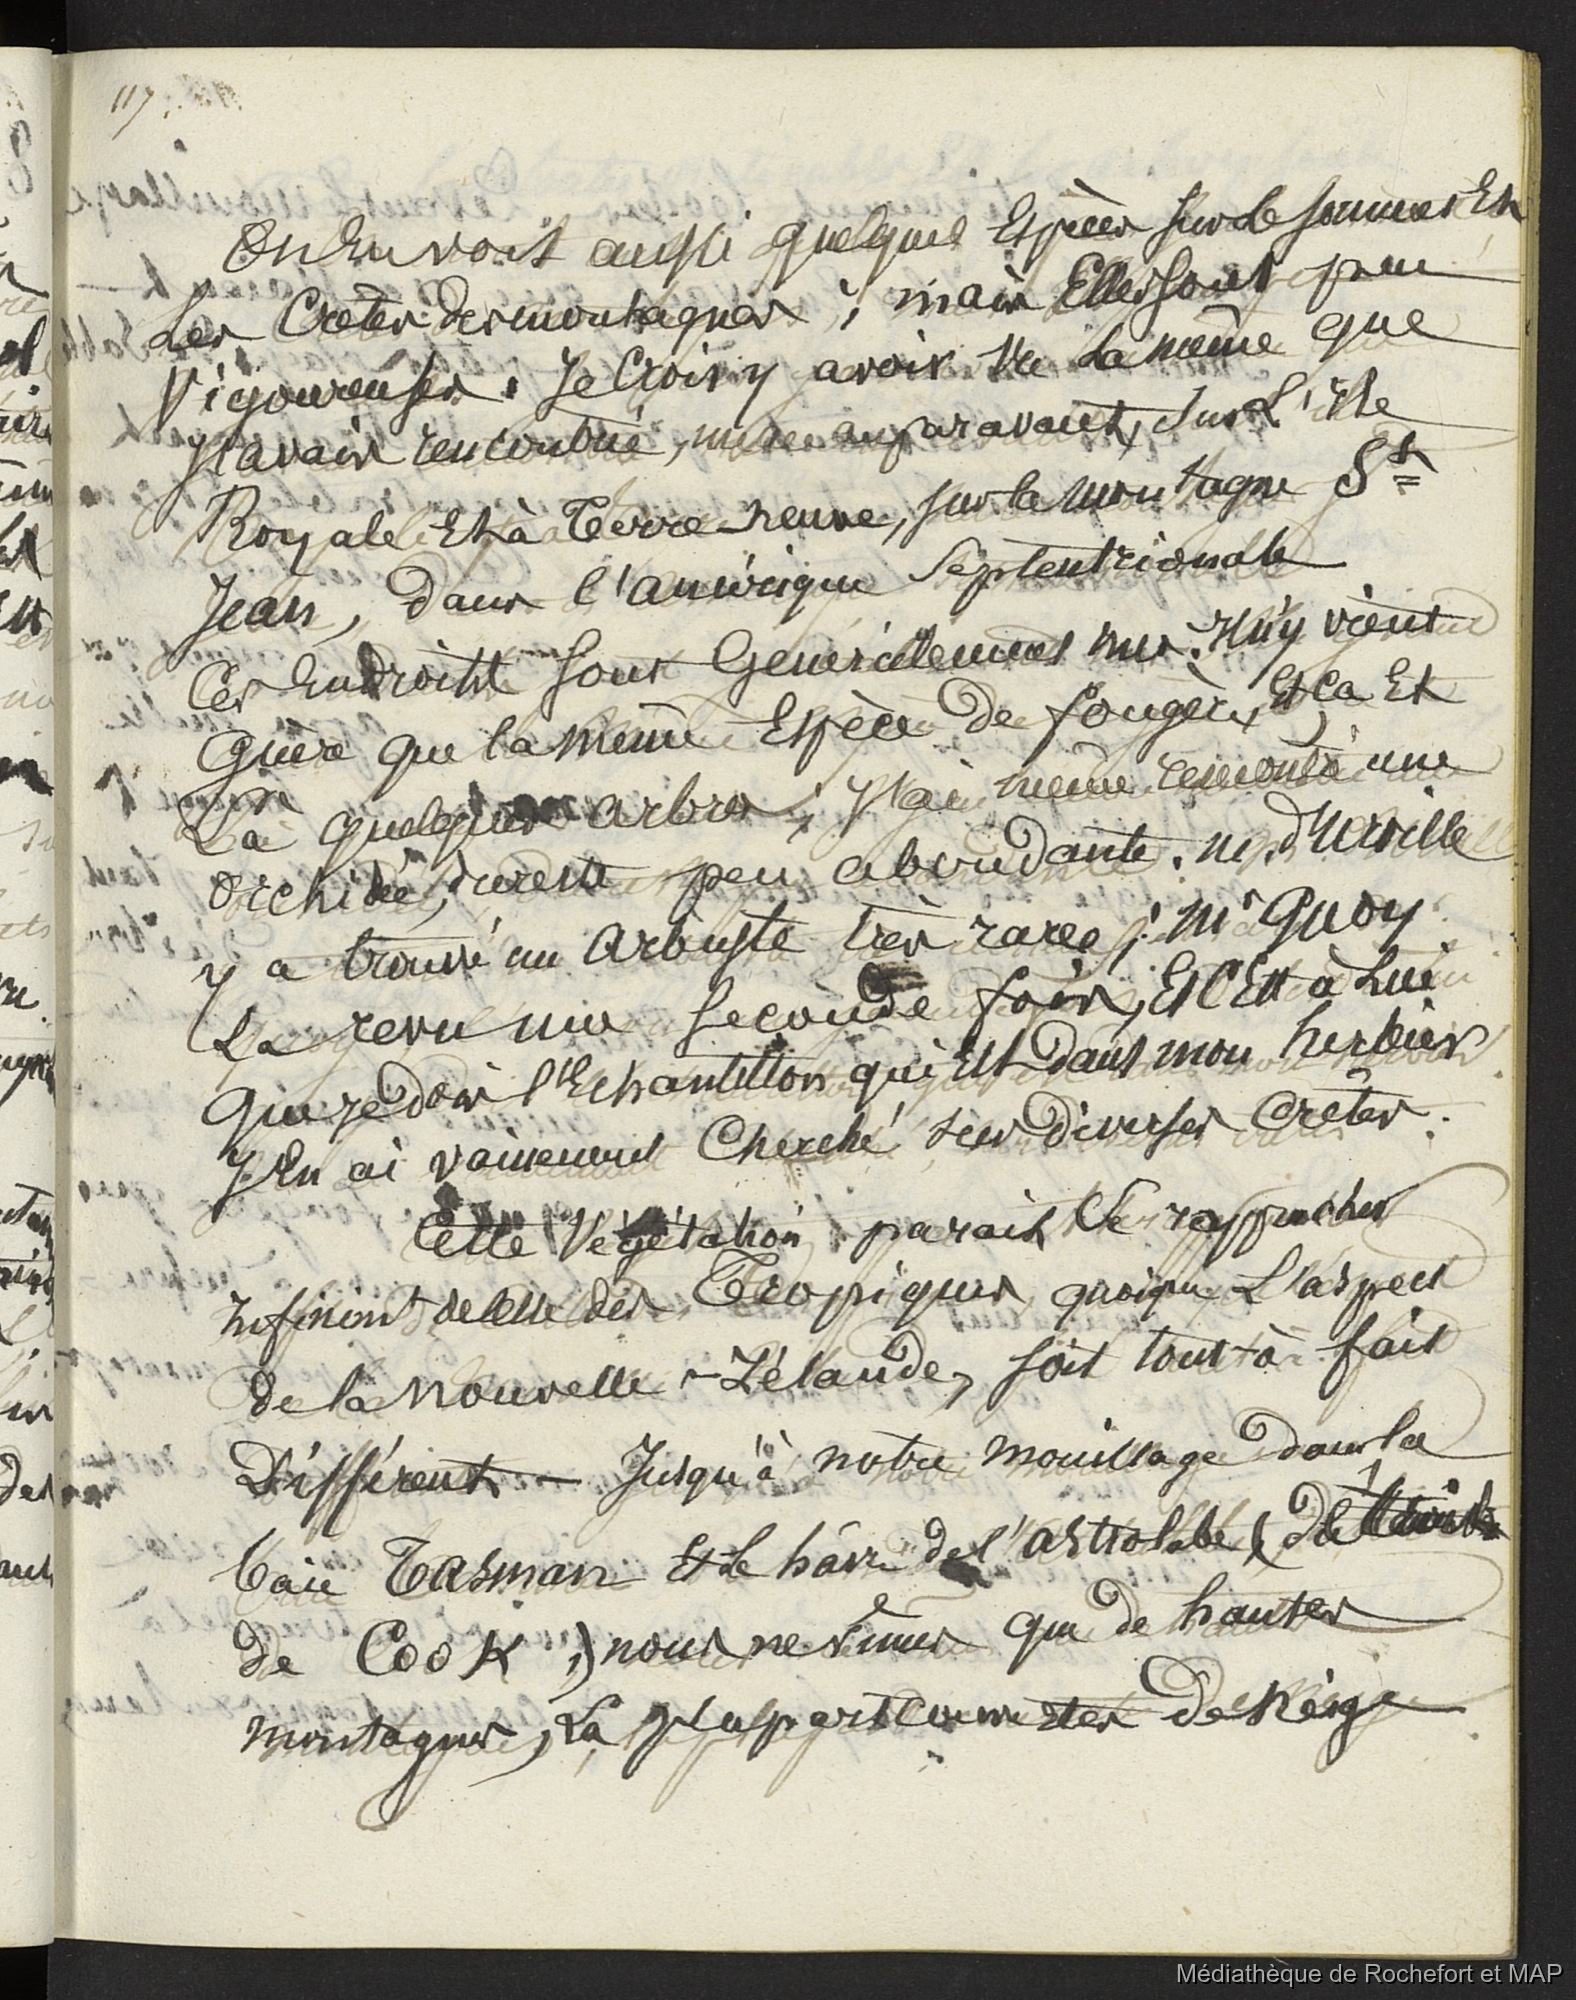 117.
On en voit aussi quelques Espèces sur le sommet Et
Les Crètes des montagnes ; mais Elles sont peu
Vigoureuses. Je Crois y avoir vu La même que
J'avais rencontré, auparavant, sur L'isle
Royale Et à Terre-neuve, sur la montagne St
Jean, dans l'amérique Septentrionale
Ces Endroits sont Généralement nus. Il n'y vient
Guère que la même Espèce de fougère, Et ça Et
Là quelques arbres ; J'y ai même rencontré une
Orchidée, peu abondante. M. d'Urville
y a trouvé un Arbuste très rare ; Mr Quoy
La revu une seconde fois, Et C'Est à Lui
Que je dois l'Echantillon qui Est dans mon herbier
J'En ai vainement Cherché sur diverses Crètes.
Cette Végétation parait Se rapprocher
Infinimt de celle des Tropiques, quoique L'aspect
de la Nouvelle-Zélande, soit tout-à-fait
Différent — Jusqu'à notre mouillage dans la
baie Tasman Et le hâvre de l'astrolabe (Détroit
de Cook,) nous ne vimes que de hautes
montagnes, La plupart Couvertes De Neige
Médiathèque de Rochefort et MAP